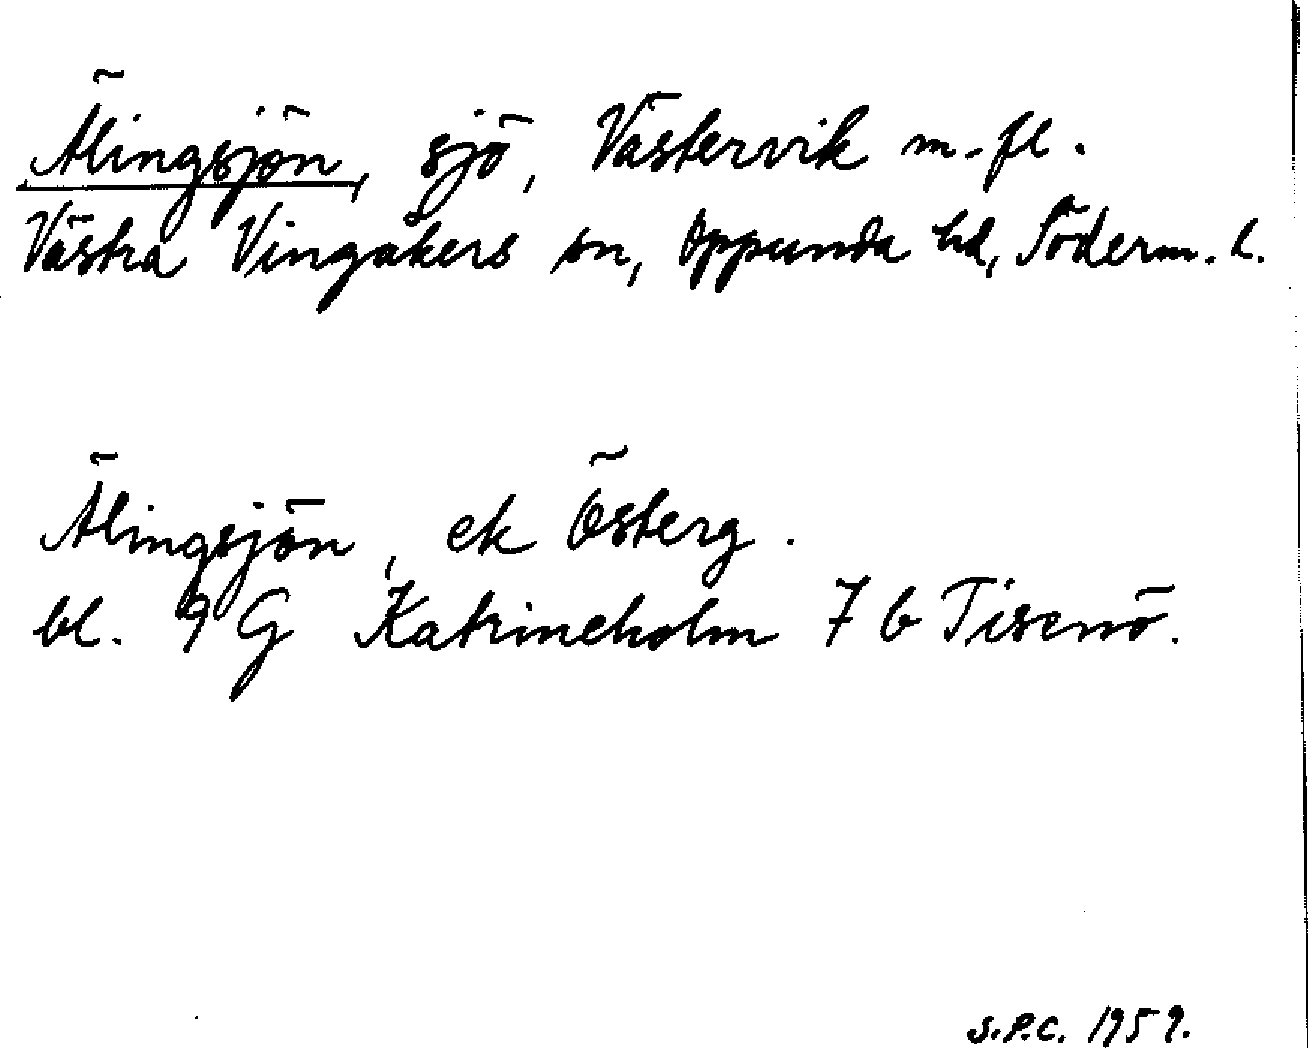 Älingsjön, sjö, Västervik m.fl.
Västra Vingåkers sn, Oppunda hd, Söderm. l.
Älingsjön, ek Österg.
bl. 9 G Katrineholm 7 b Tisenö.
S.P.C. 1959.